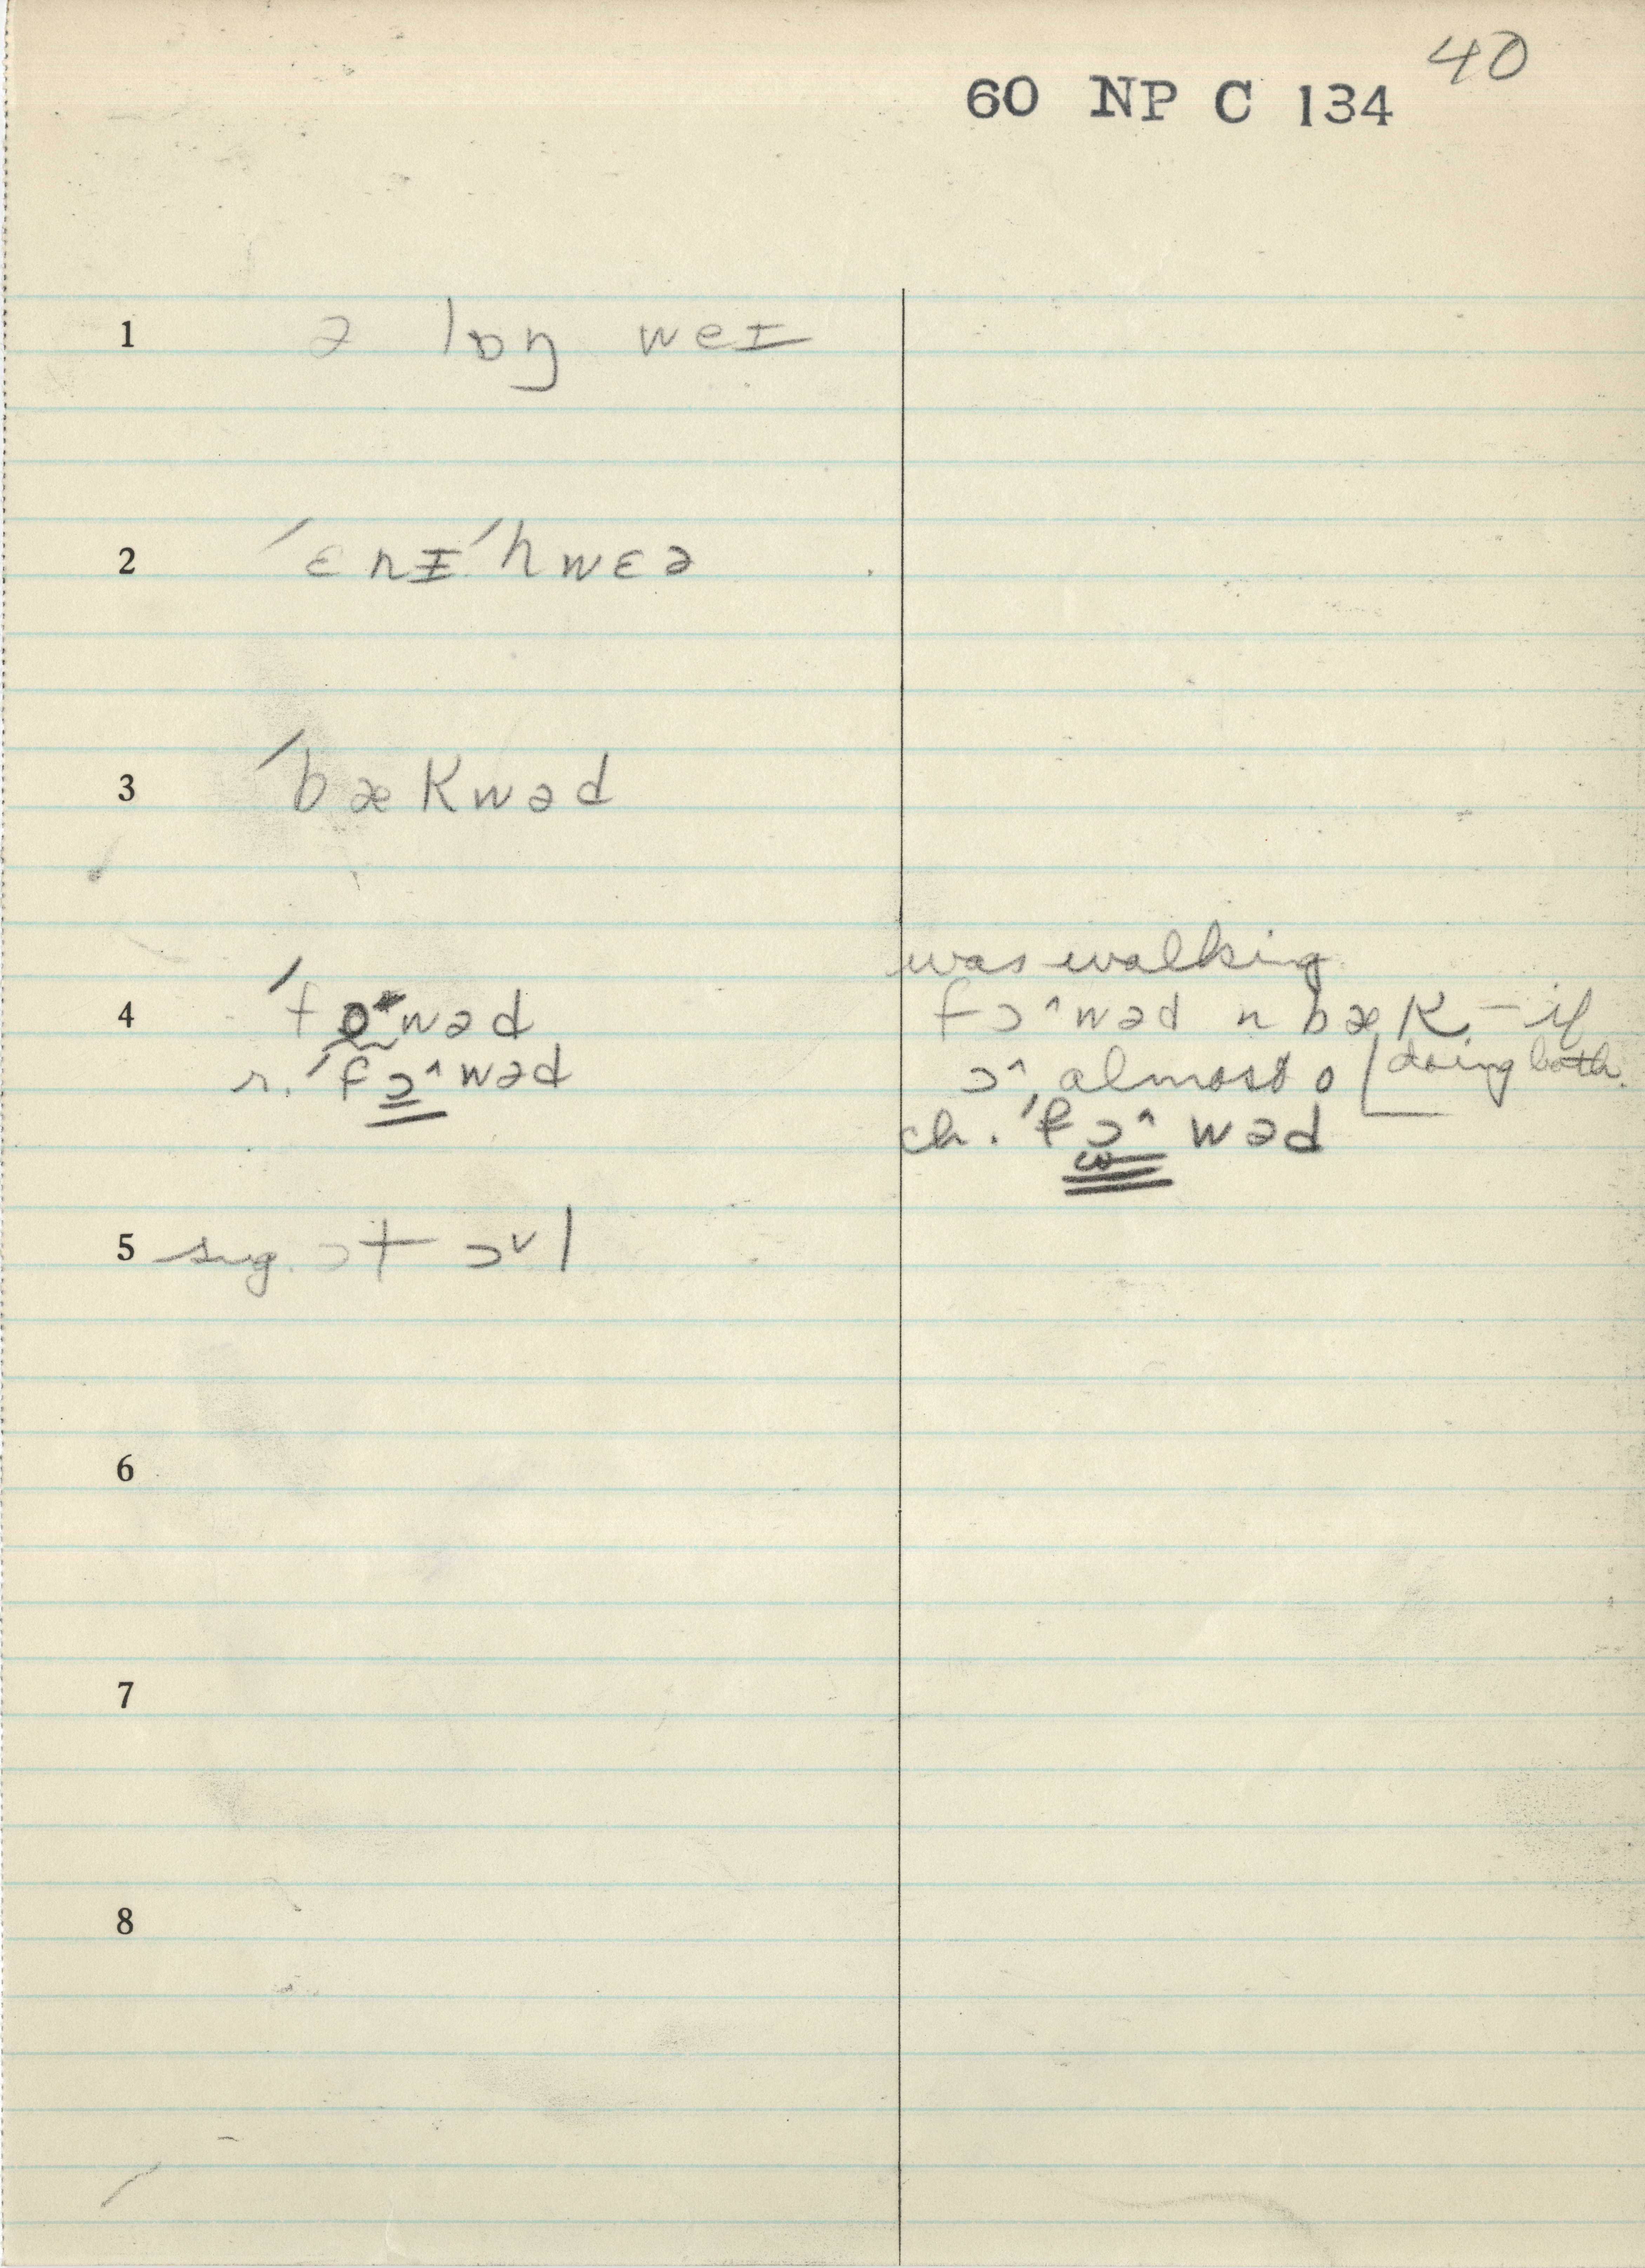 40
60 NP C 134
1 ə lɒŋ weɪ
2 ´ɛnɪ´hwɛə
3 ´bækwəd
4 ´fo˞wəd
r. ´fɔ^wəd
was walking
fɔ^wəd n bæk – if
doing both.
ɔ^, almost o
ch. ´fɔ^wəd
5 sug. ɔt ɔ˅l
6
7
8